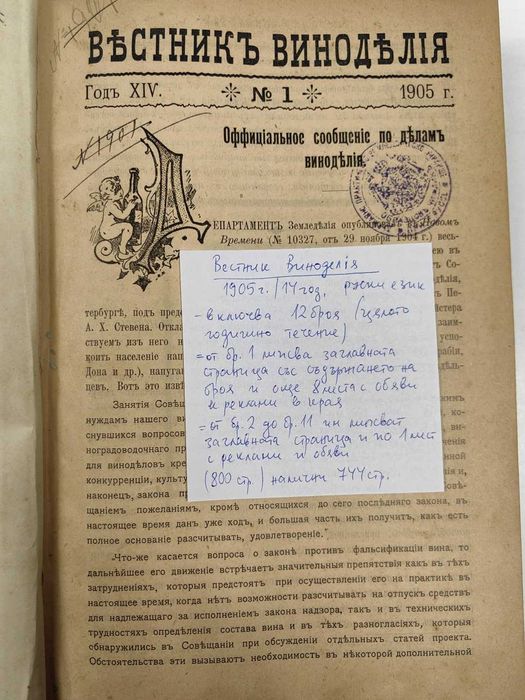 ВѢСТНИКЪ ВИНОДѢЛІЯ
Годъ XIV. № 1 1905 г.
№ 1901
Оффиціальное сообщеніе по дѣламъ
винодѣлія.
ДЕПАРТАМЕНТ Земледѣлія опубликовалъ въ Новомъ
Времени (№ 10327, от 29 ноября 1904 г.) весь-
Вестник Виноделія
1905 г. / 14 год, руски език
- включва 12 броя (цялото
годишно течение)
= от бр. 1 липсва заглавната
страница със съдържанието на
броя и още 8 листа с обяви
и реклами в края
= от бр. 2 до бр. 11 им липсват
заглавната страница и по 1 лист
с реклами и обяви
(800 стр.) налични 744 стр.
тербургѣ, под предсе
А. Х. Стевена. Откла
ствуем из него н
коить населеніе нап
Дона и др.), напуга
цев. Вотъ это извѣ
Занятія Совѣщ
нуждам нашего ви
снувшихся вопросов
ноградоводочнаго пр
для винодѣлов кре
конкурренціи, культу
наконец, закона пр
щаніем пожеланіямъ, кромѣ относящихся до сего послѣдняго закона, въ
настоящее время данъ уже ходъ, и большая часть ихъ получитъ, какъ есть
полное основаніе разсчитывать, удовлетвореніе".
„Что-же касается вопроса о законѣ противъ фальсификаціи вина, то
дальнѣйшее его движеніе встрѣчаетъ значительныя препятствія какъ въ тѣхъ
затрудненіяхъ, которыя предстоятъ при осуществленіи его на практикѣ въ
настоящее время, когда нѣтъ возможности разсчитывать на отпускъ средствъ
для надлежащаго за исполненіемъ закона надзора, такъ и въ техническихъ
трудностяхъ опредѣленія состава вина и въ тѣхъ разногласіяхъ, которыя
обнаружились въ Совѣщаніи при обсужденіи отдѣльныхъ статей проекта.
Обстоятельства эти вызываютъ необходимость въ нѣкоторой дополнительной